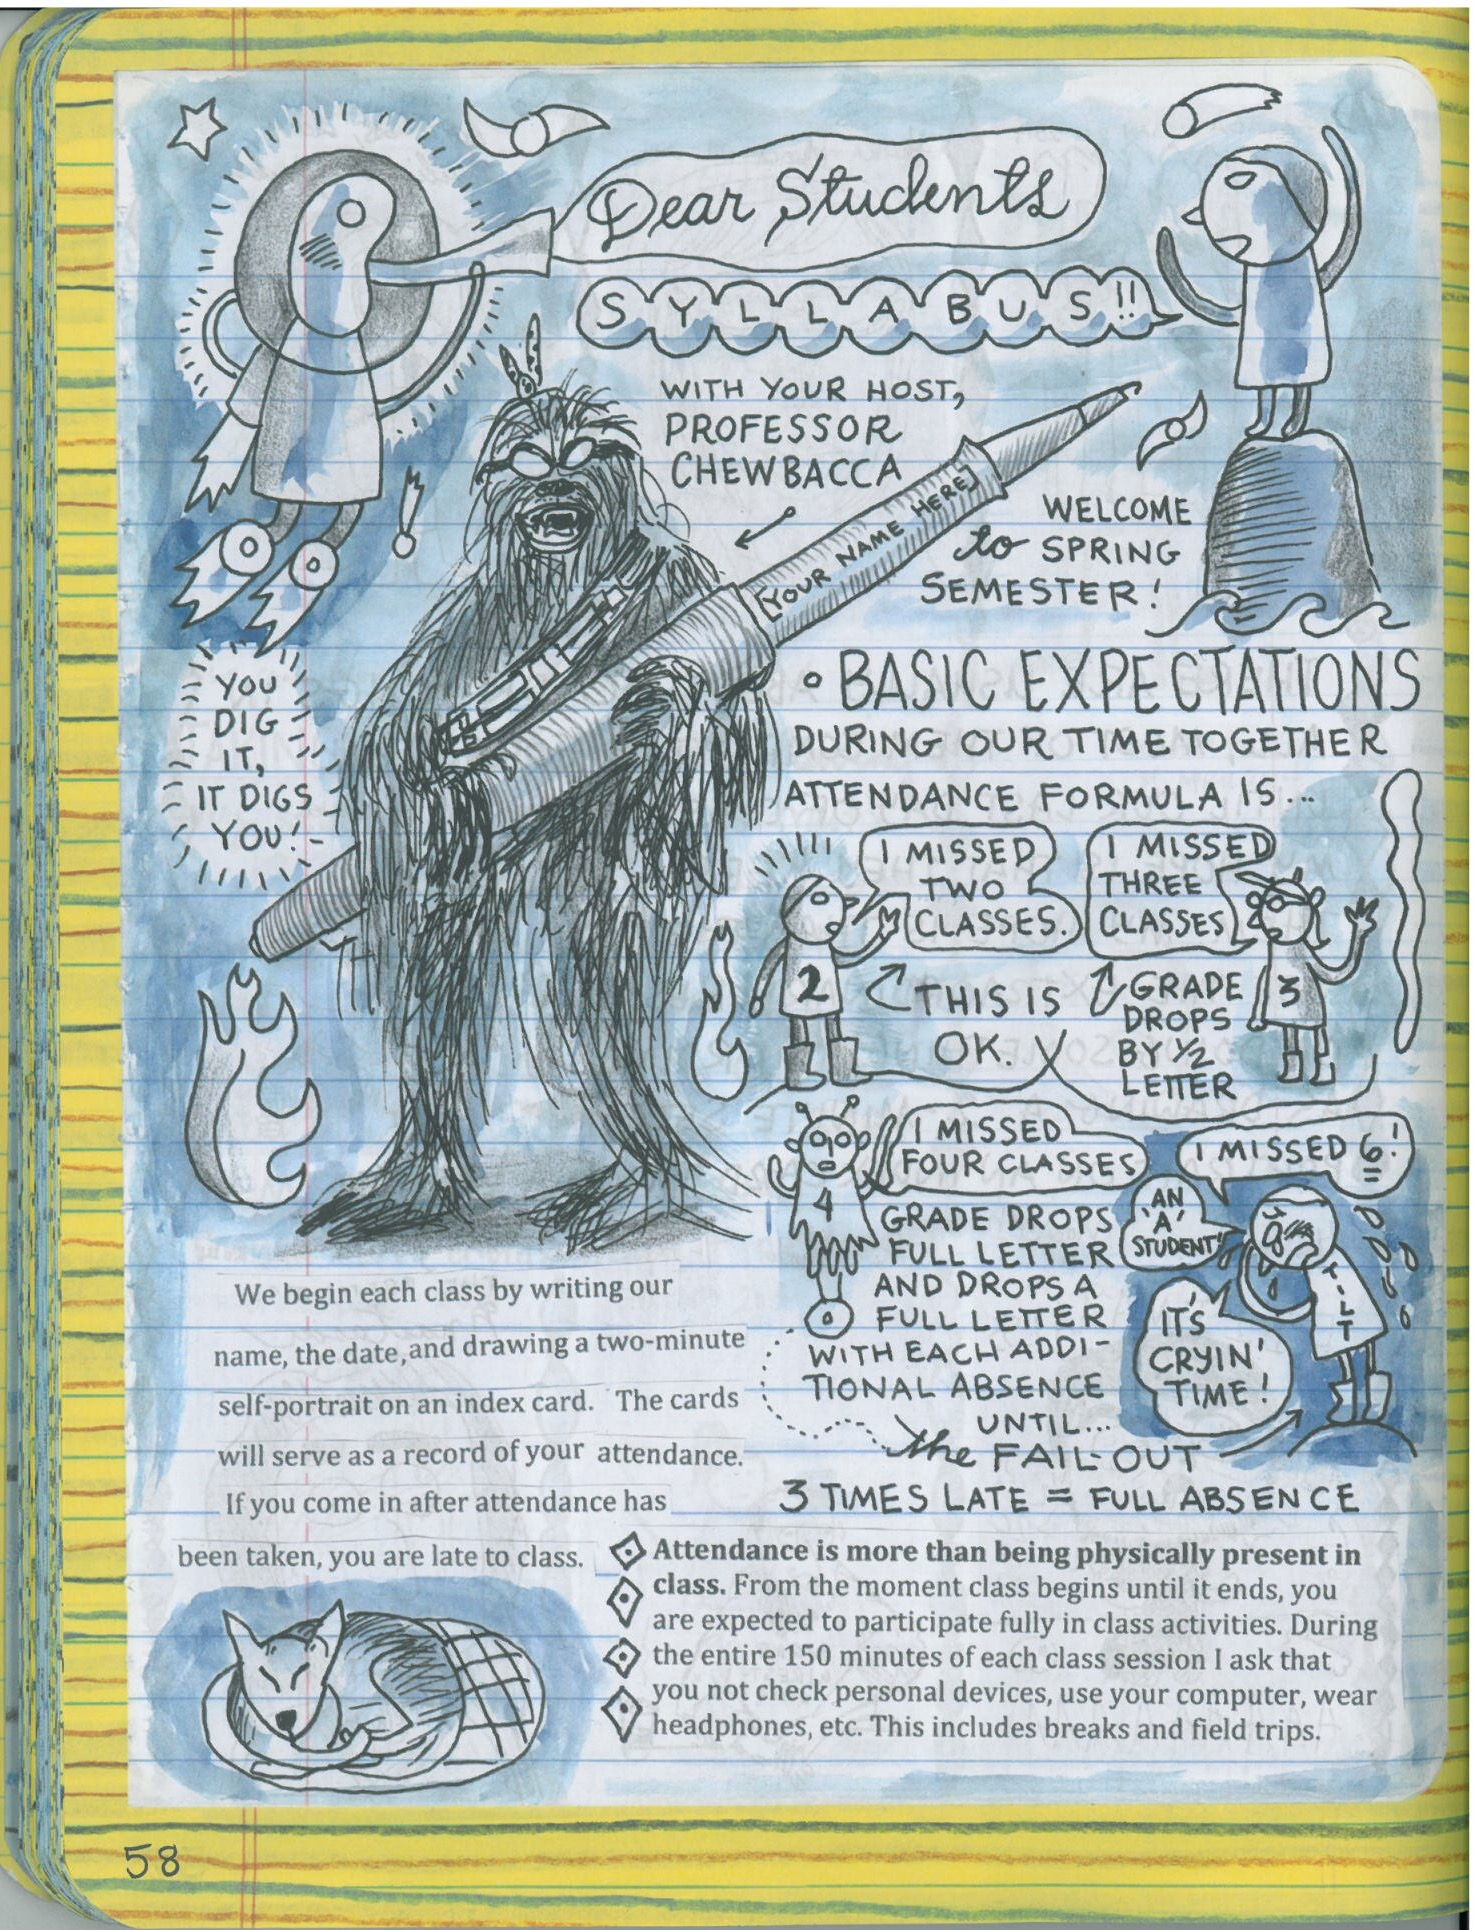 Dear Students
SYLLABUS!!
WITH YOUR HOST,
PROFESSOR
CHEWBACCA
[YOUR NAME HERE]
WELCOME
to SPRING
SEMESTER!
YOU
DIG
IT,
IT DIGS
YOU!
• BASIC EXPECTATIONS
DURING OUR TIME TOGETHER
ATTENDANCE FORMULA IS...
I MISSED
TWO
CLASSES.
2
THIS IS
OK.
I MISSED
THREE
CLASSES
3
GRADE
DROPS
BY ½
LETTER
I MISSED
FOUR CLASSES
4
GRADE DROPS
FULL LETTER
AND DROPS A
FULL LETTER
WITH EACH ADDI-
TIONAL ABSENCE
UNTIL...
the FAIL-OUT
I MISSED 6!
AN
'A'
STUDENT!
IT'S
CRYIN'
TIME!
TILT
3 TIMES LATE = FULL ABSENCE
We begin each class by writing our
name, the date, and drawing a two-minute
self-portrait on an index card. The cards
will serve as a record of your attendance.
If you come in after attendance has
been taken, you are late to class.
Attendance is more than being physically present in
class. From the moment class begins until it ends, you
are expected to participate fully in class activities. During
the entire 150 minutes of each class session I ask that
you not check personal devices, use your computer, wear
headphones, etc. This includes breaks and field trips.
58